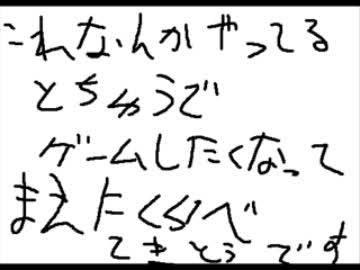 これなんかやってる
とちゅうで
ゲームしたくなって
まえたくらべ
てきとうです